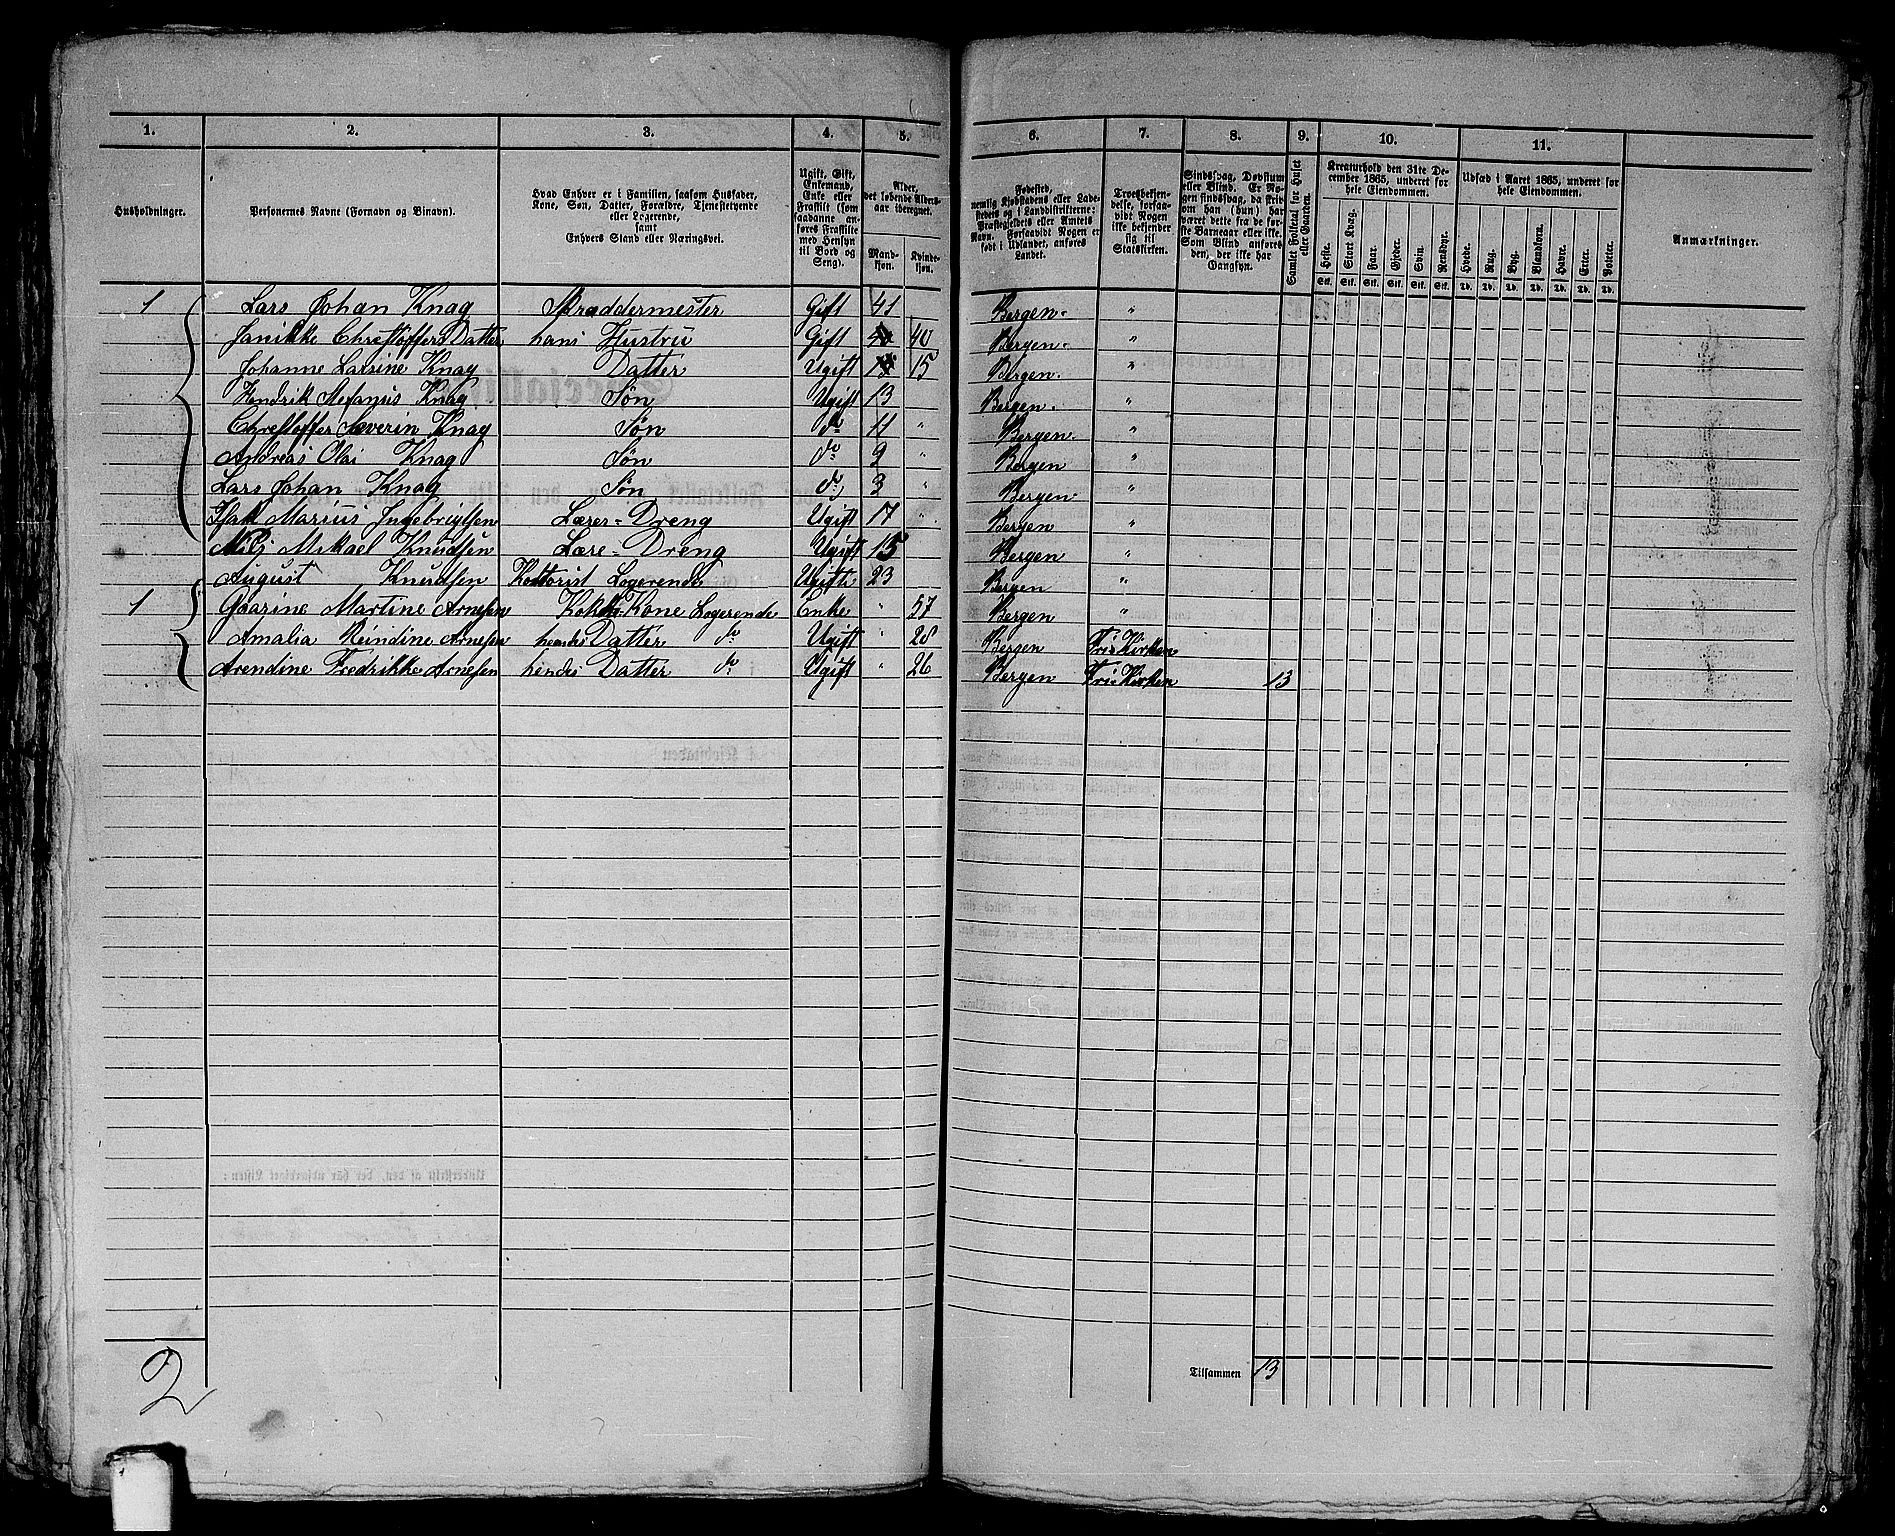 1. 2. 3. 4. 5. 6. 7. 8. 9. 10. 11.
Husholdninger.
Personernes Navne (Fornavn og Binavn).
Hvad Enhver er i Familien, saasom Husfader,
Kone, Søn, Datter, Forældre, Tjenestetyende
eller Logerende,
samt
Enhvers Stand eller Næringsvei.
Ugift, Gift,
Enkemand,
Enke eller
Fraskilt (som
saadanne an-
føres Fraskilte
med Hensyn
til Bord og
Seng).
Alder,
det løbende Alders-
aar iberegnet.
Mand-
kjøn.
Kvinde-
kjøn.
Fødested,
nemlig Kjøbstadens eller Lade-
stedets og i Landdistrikterne:
Præstegjeldets eller Amtets
Navn. Forsaavidt Nogen er
født i Udlandet, anføres
Landet.
Troesbekjen-
delse, forsaa-
vidt Nogen
ikke bekjender
sig til
Statskirken.
Sindssvag, Døvstum
eller Blind. Er No-
gen sindssvag, da skri-
ves om han (hun) har
været dette fra de før-
ste Barneaar eller ikke.
Som Blind anføres
den, der ikke har
Gangsyn.
Samlet Folketal for Huset
eller Gaarden.
Kreaturhold den 31te De-
cember 1865, underet for
hele Eiendommen.
Heste. Stort Kvæg. Faar. Gjeder. Svin. Rensdyr.
Stk. Stk. Stk. Stk. Stk. Stk.
Udsæd i Aaret 1865, underet for
hele Eiendommen.
Hvede. Rug. Byg. Blandkorn. Havre. Erter. Poteter.
Td. Td. Td. Td. Td. Td. Td.
Anmærkninger.
1 Lars Johan Knag Skræddermester Gift 41 Bergen. "
Janikke Christoffers Datter hans Hustru Gift 40 Bergen. "
Johanne Larsine Knag Datter Ugift 15 Bergen. "
Hendrik Stefanus Knag Søn Ugift 13 Bergen. "
Christoffer Severin Knag Søn do 11 " Bergen. "
Andreas Olai Knag Søn do 9 " Bergen "
Lars Johan Knag Søn do 3 " Bergen "
Isak Marius Ingebrigtsen Lærer-Dreng Ugift 17 " Bergen "
Nils Mikael Knudsen Lære-Dreng Ugift 15 Bergen "
August Knudsen Kontorist Logerende Ugift 23 Bergen "
1 Gaarine Martine Arnesen Kone Logerende Enke " 57 Bergen "
Amalia Reindine Arnesen hendes Datter do Ugift " 28 Bergen Fri-Kirken
Arendine Fredrikke Arnesen hendes Datter do Ugift " 26 Bergen Fri-Kirken 13
Tilsammen 13
2